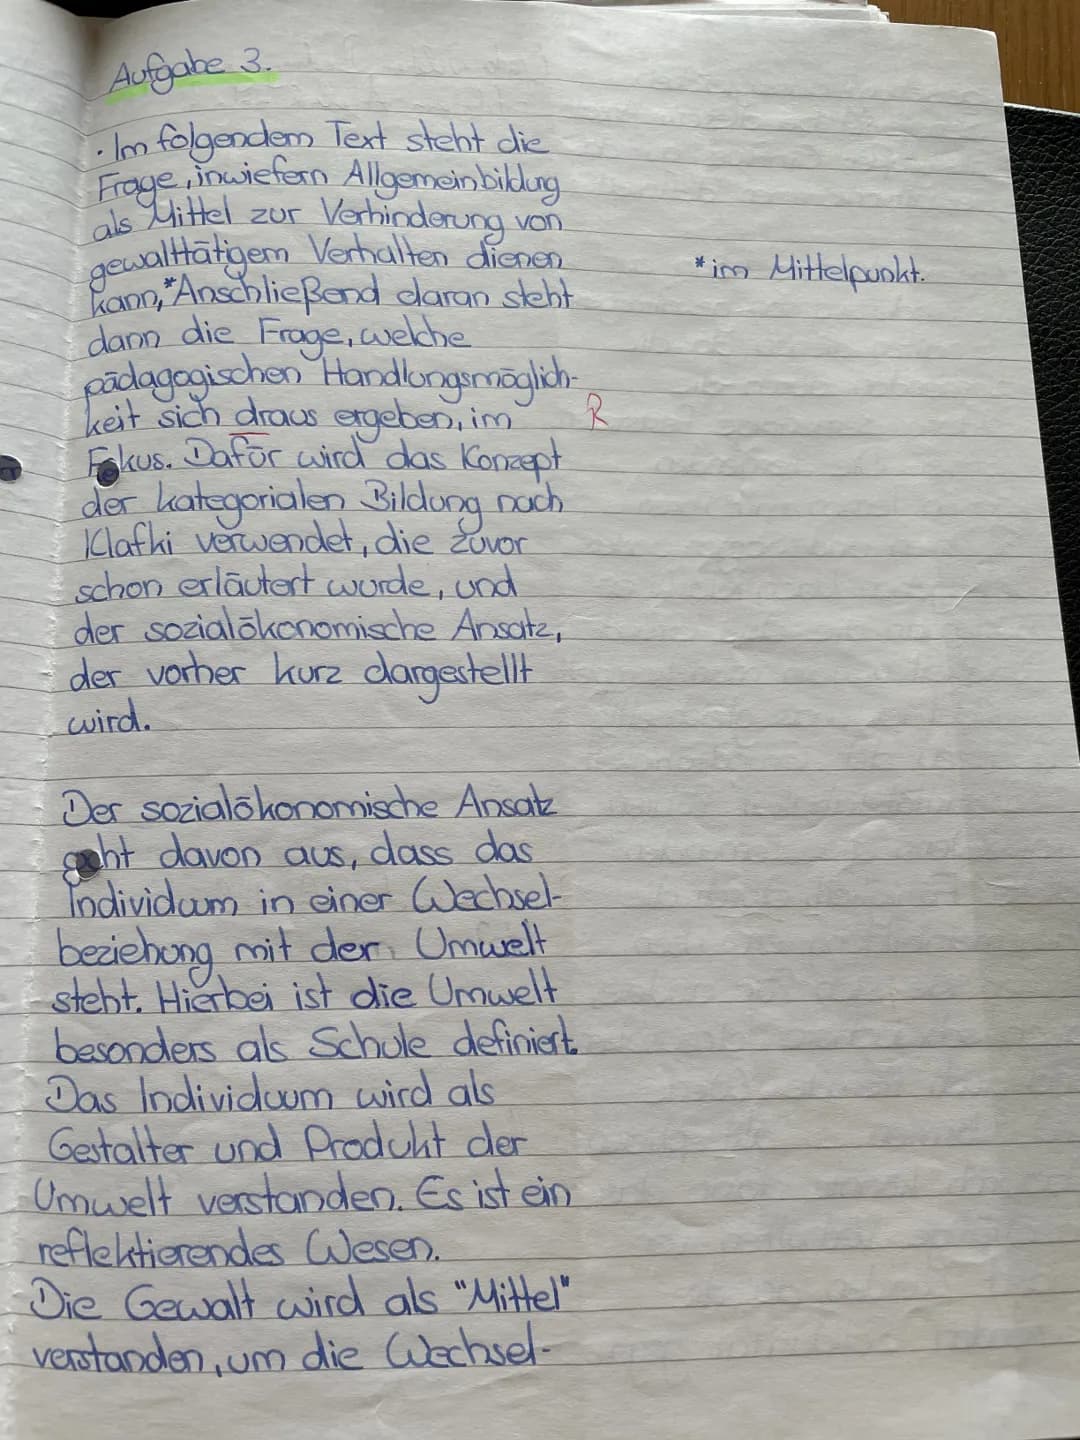 Aufgabe 3.
· Im folgendem Text steht die
Frage, inwiefern Allgemeinbildung
als Mittel zur Verhinderung von
gewalttätigem Verhalten dienen
kann,* Anschließend daran steht
*im Mittelpunkt.
dann die Frage, welche
pädagogischen Handlungsmöglich-
keit sich draus ergeben, im
R
Fokus. Dafür wird das Konzept
der kategorialen Bildung nach
Klafki verwendet, die zuvor
schon erläutert wurde, und
der sozialökonomische Ansatz,
der vorher kurz dargestellt
wird.
Der sozialökonomische Ansatz
geht davon aus, dass das
Individuum in einer Wechsel-
beziehung mit der Umwelt
steht. Hierbei ist die Umwelt
besonders als Schule definiert.
Das Individuum wird als
Gestalter und Produkt der
Umwelt verstanden. Es ist ein
reflektierendes Wesen.
Die Gewalt wird als "Mittel"
verstanden, um die Wechsel-